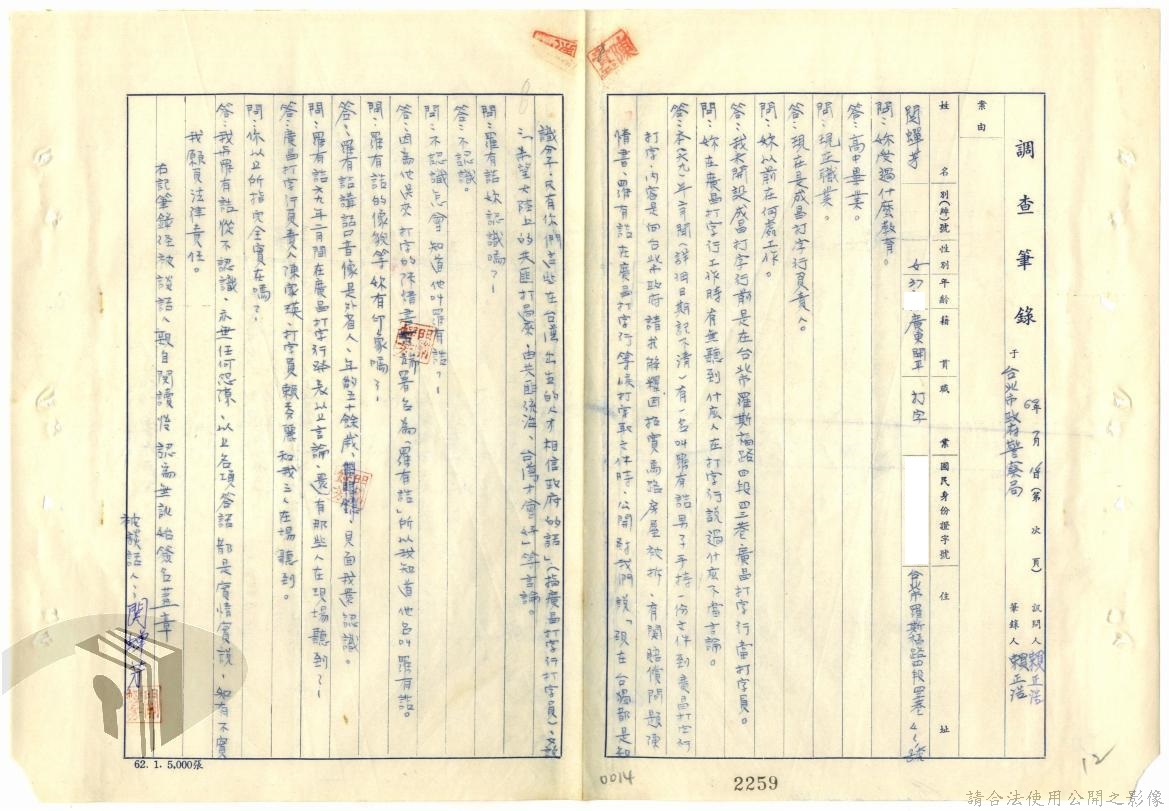 調查筆錄
于台北市政府警察局
年 月 日(第 次 頁)
訊問人 賴正浩
筆錄人 賴正浩
案由
姓名 別(綽)號 性別 年齡 籍貫 職業 國民身份證字號 住址
關蟬芳 女 37 廣東開平 打字 台北市羅斯福路四段四三巷
問:妳受過什麼教育。
答:高中畢業。
問:現在職業。
答:現在是成昌打字行負責人。
問:妳以前在何處工作。
答:我未開設成昌打字行前是在台北市羅斯福路四段四三巷廣昌打字行當打字員。
問:妳在廣昌打字行工作時有無聽到什麼人在打字行說過什麼不當言論。
答:本(六九)年二月間(詳細日期記不清)有一名叫羅有誥男子手持一份文件到廣昌打字行
打字,內容是向台北市政府請求解釋因拓寬馬路房屋被拆,有關賠償問題陳
情書,羅有誥在廣昌打字行等候打字取文件時,公開對我們說「現在台獨都是知
識份子,只有你們這些在台灣出生的人才相信政府的話」(指廣昌打字行打字員)
「希望大陸上的共匪打過來,由共匪統治,台灣才會好」等言論。
問:羅有誥妳認識嗎?
答:不認識。
問:不認識怎會知道他叫羅有誥?
答:因為他送來打字的陳情書末端署名為「羅有誥」所以我知道他名叫羅有誥。
問:羅有誥的像貌等妳有印象嗎?
答:羅有誥講話口音像是外省人、年約五十餘歲,見面我還認識。
問:羅有誥六九年二月間在廣昌打字行發表以上言論,還有那些人在現場聽到?
答:廣昌打字行負責人陳家瑛、打字員賴秀鸞和我三人在場聽到。
問:你以上所指完全實在嗎?
答:我與羅有誥從不認識,亦無任何怨隙,以上各項答話都是實情實說,如有不實
我願負法律責任。
右記筆錄經被談話人親自閱讀後認為無訛始簽名蓋章
被談話人:關蟬芳
62. 1. 5,000張
0014
2259
12
請合法使用公開之影像